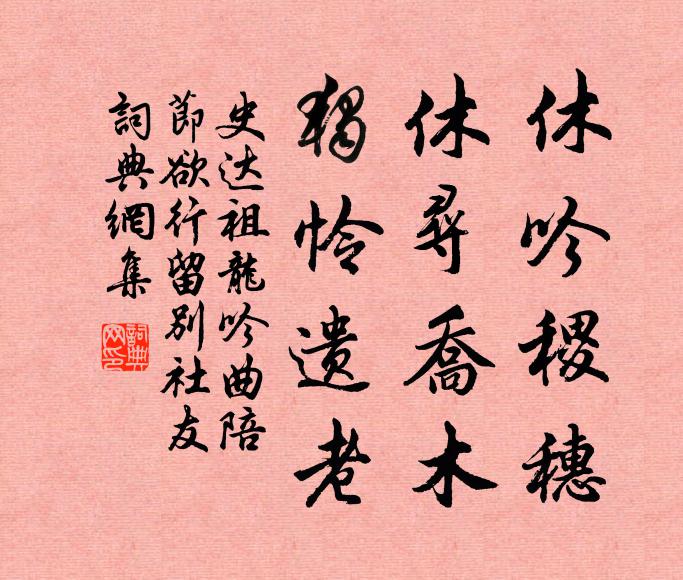 休吟稷穗
休尋喬木
獨怜遗老
史达祖龍吟曲陪
節欲行留别社友
詞典網集
詞典网印